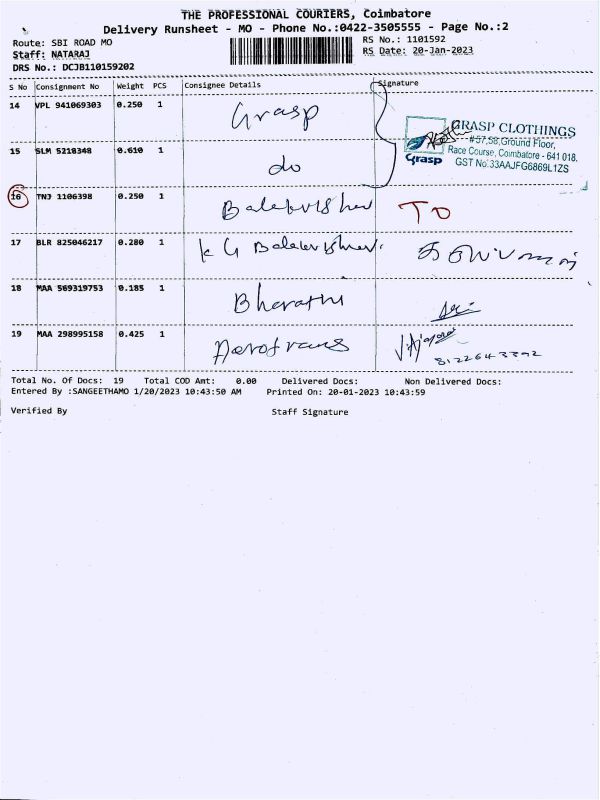 THE PROFESSIONAL COURIERS, Coimbatore
Delivery Runsheet - MO - Phone No.:0422-3505555 - Page No.:2
Route: SBI ROAD MO
RS No.: 1101592
Staff: NATARAJ
RS Date: 20-Jan-2023
DRS No.: DCJB110159202
S No Consignment No Weight PCS Consignee Details Signature
14 VPL 941069303 0.250 1 Grasp
GRASP CLOTHINGS
#57,58,Ground Floor,
Race Course, Coimbatore - 641 018.
GST No:33AAJFG6869L1ZS
Grasp
15 SLM 5218348 0.610 1 do
16 TNJ 1106398 0.250 1 TO
17 BLR 825046217 0.280 1 K G
18 MAA 569319753 0.185 1 Bharathi
19 MAA 298995158 0.425 1 Aerotrans
8122643392
Total No. Of Docs: 19 Total COD Amt: 0.00 Delivered Docs: Non Delivered Docs:
Entered By :SANGEETHAMO 1/20/2023 10:43:50 AM Printed On: 20-01-2023 10:43:59
Verified By Staff Signature